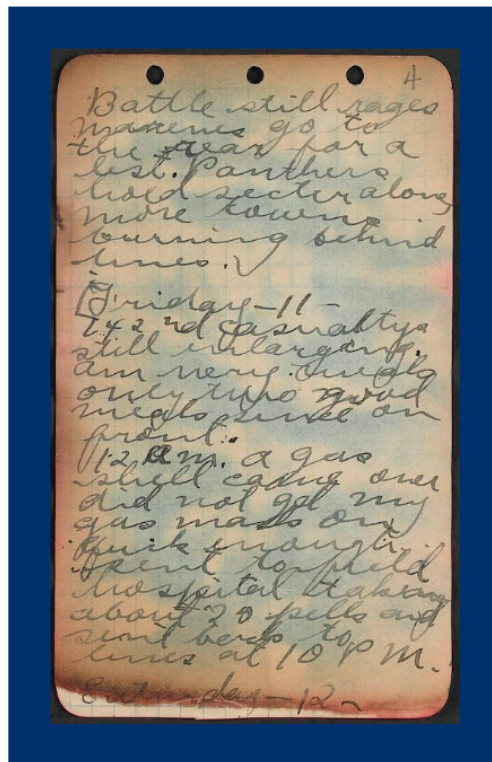 4
Battle still rages
marenes go to
the rear for a
best. Panthers
hold secter alone,
more towns
burning behind
lines.
Friday-11-
142nd casualtys
still enlarging.
am very
only two good
meals since on
front.
12 a.m. a gas
shell came over
did not get my
gas mask on
quick enough.
went to field
hospital taking
about 20 pills and
sent back to
lines at 10 P.M.
Saturday-12-